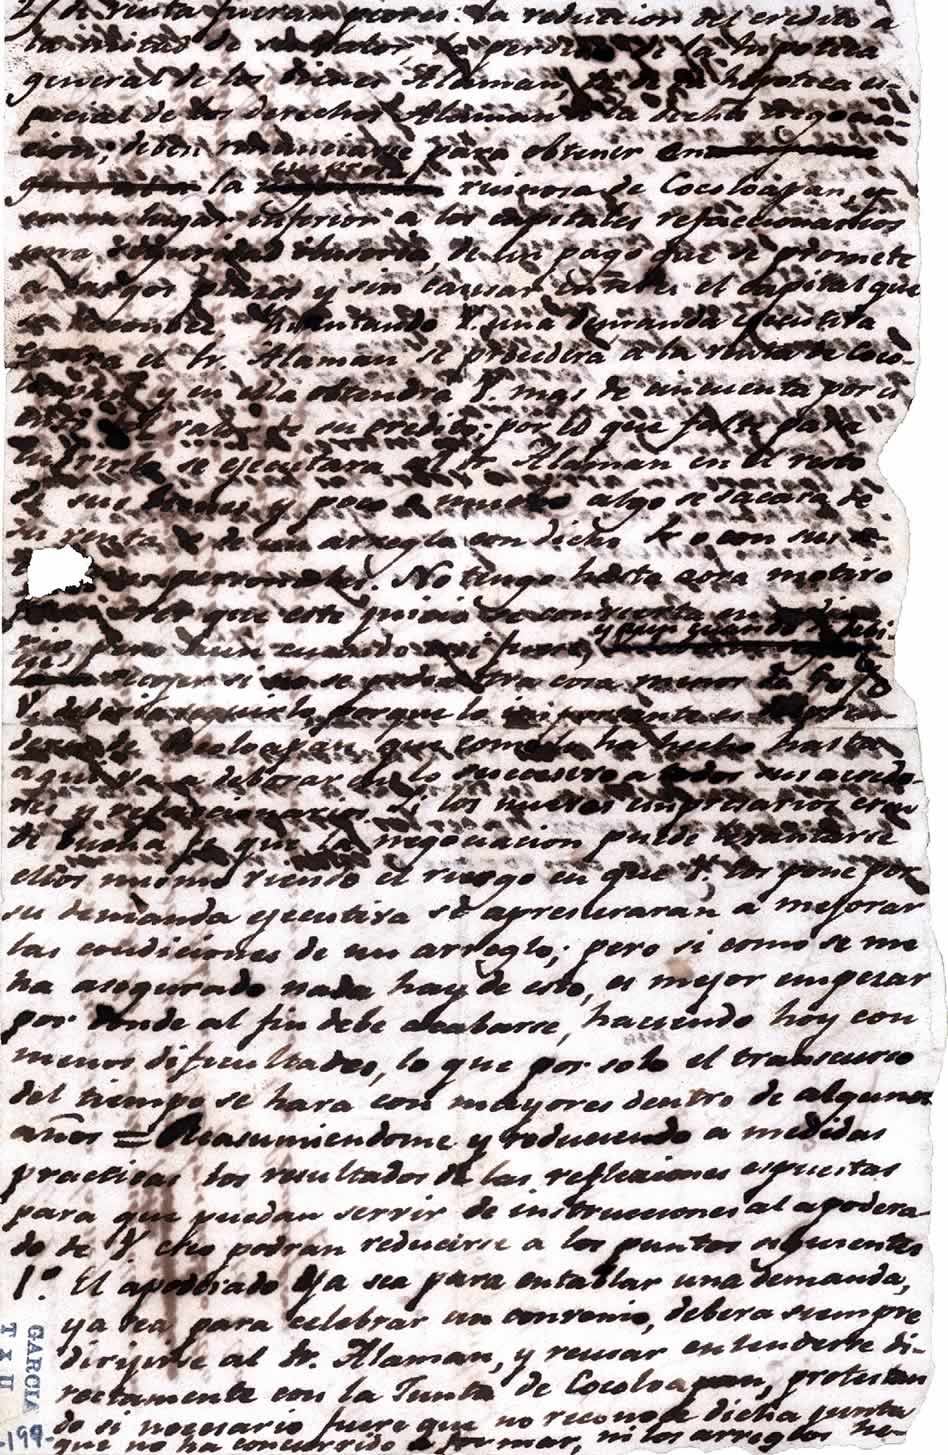 de venta fueran peores: la reduccion del credito a
la mitad de su valor, la perdida de la hipoteca
general de los bienes Alaman, la de la hipoteca es-
pecial de los derechos Alaman a la dicha negocia-
cion; deben renunciarse para obtener en
la empresa ruinosa de Cocoloapan, y
en un lugar inferior a los capitales refaccionarios
una seguridad ilusoria, de un pago que se promete
a largos plazos y sin causar interes el capital que
se reconoce. Intentando V. una demanda ejecutiva
contra el Sr. Alaman se procederá a la venta de Coco-
loapan y en ella obtendrá V. mas de cincuenta por ci
el valor de su credito; por lo que falte para
cubrirla se ejecutará al Sr. Alaman en el resto
de sus bienes y poco o mucho algo se sacará de
su venta o de un arreglo con dicho Sr o con sus
personales. No tengo hasta ahora motivo
para creer que este juicio se convierta en
rio, pero aun cuando asi fuera, y aun cuando
si se pudiera otra cosa menor
V. deberia seguirlo, porque lo importante es
de Cocoloapan, que como ha hecho hasta
aqui va a deborar en lo succesivo a todos sus acredo-
res y refaccionarios. Si los nuevos empresarios creen
de buena fe que la negociacion puede levantarse
ellos mismos viendo el riesgo en que V. los pone por
su demanda ejecutiva se apresuraran a mejorar
las condiciones de un arreglo; pero si como se me
ha asegurado nada hay de esto, es mejor empezar
por donde al fin debe acabarse, haciendo hoy con
menos dificultades, lo que por solo el transcurso
del tiempo se hara con mayores dentro de algunos
años = Reasumiendome y reduciendo a medidas
practicas los resultados de las reflexiones espuestas
para que puedan servir de instrucciones al apodera-
do de V. creo podran reducirse a los puntos siguientes
1º. El apoderado ya sea para entablar una demanda,
ya sea para celebrar un convenio, debera siempre
dirijirse al Sr. Alaman, y reusar entenderse di-
rectamente con la Junta de Cocoloapan, protestan
do si necesario fuere que no reconoce dicha junta
que no ha concurrido a formar, ni los arreglos he-
GARCIA
TXU
-199-